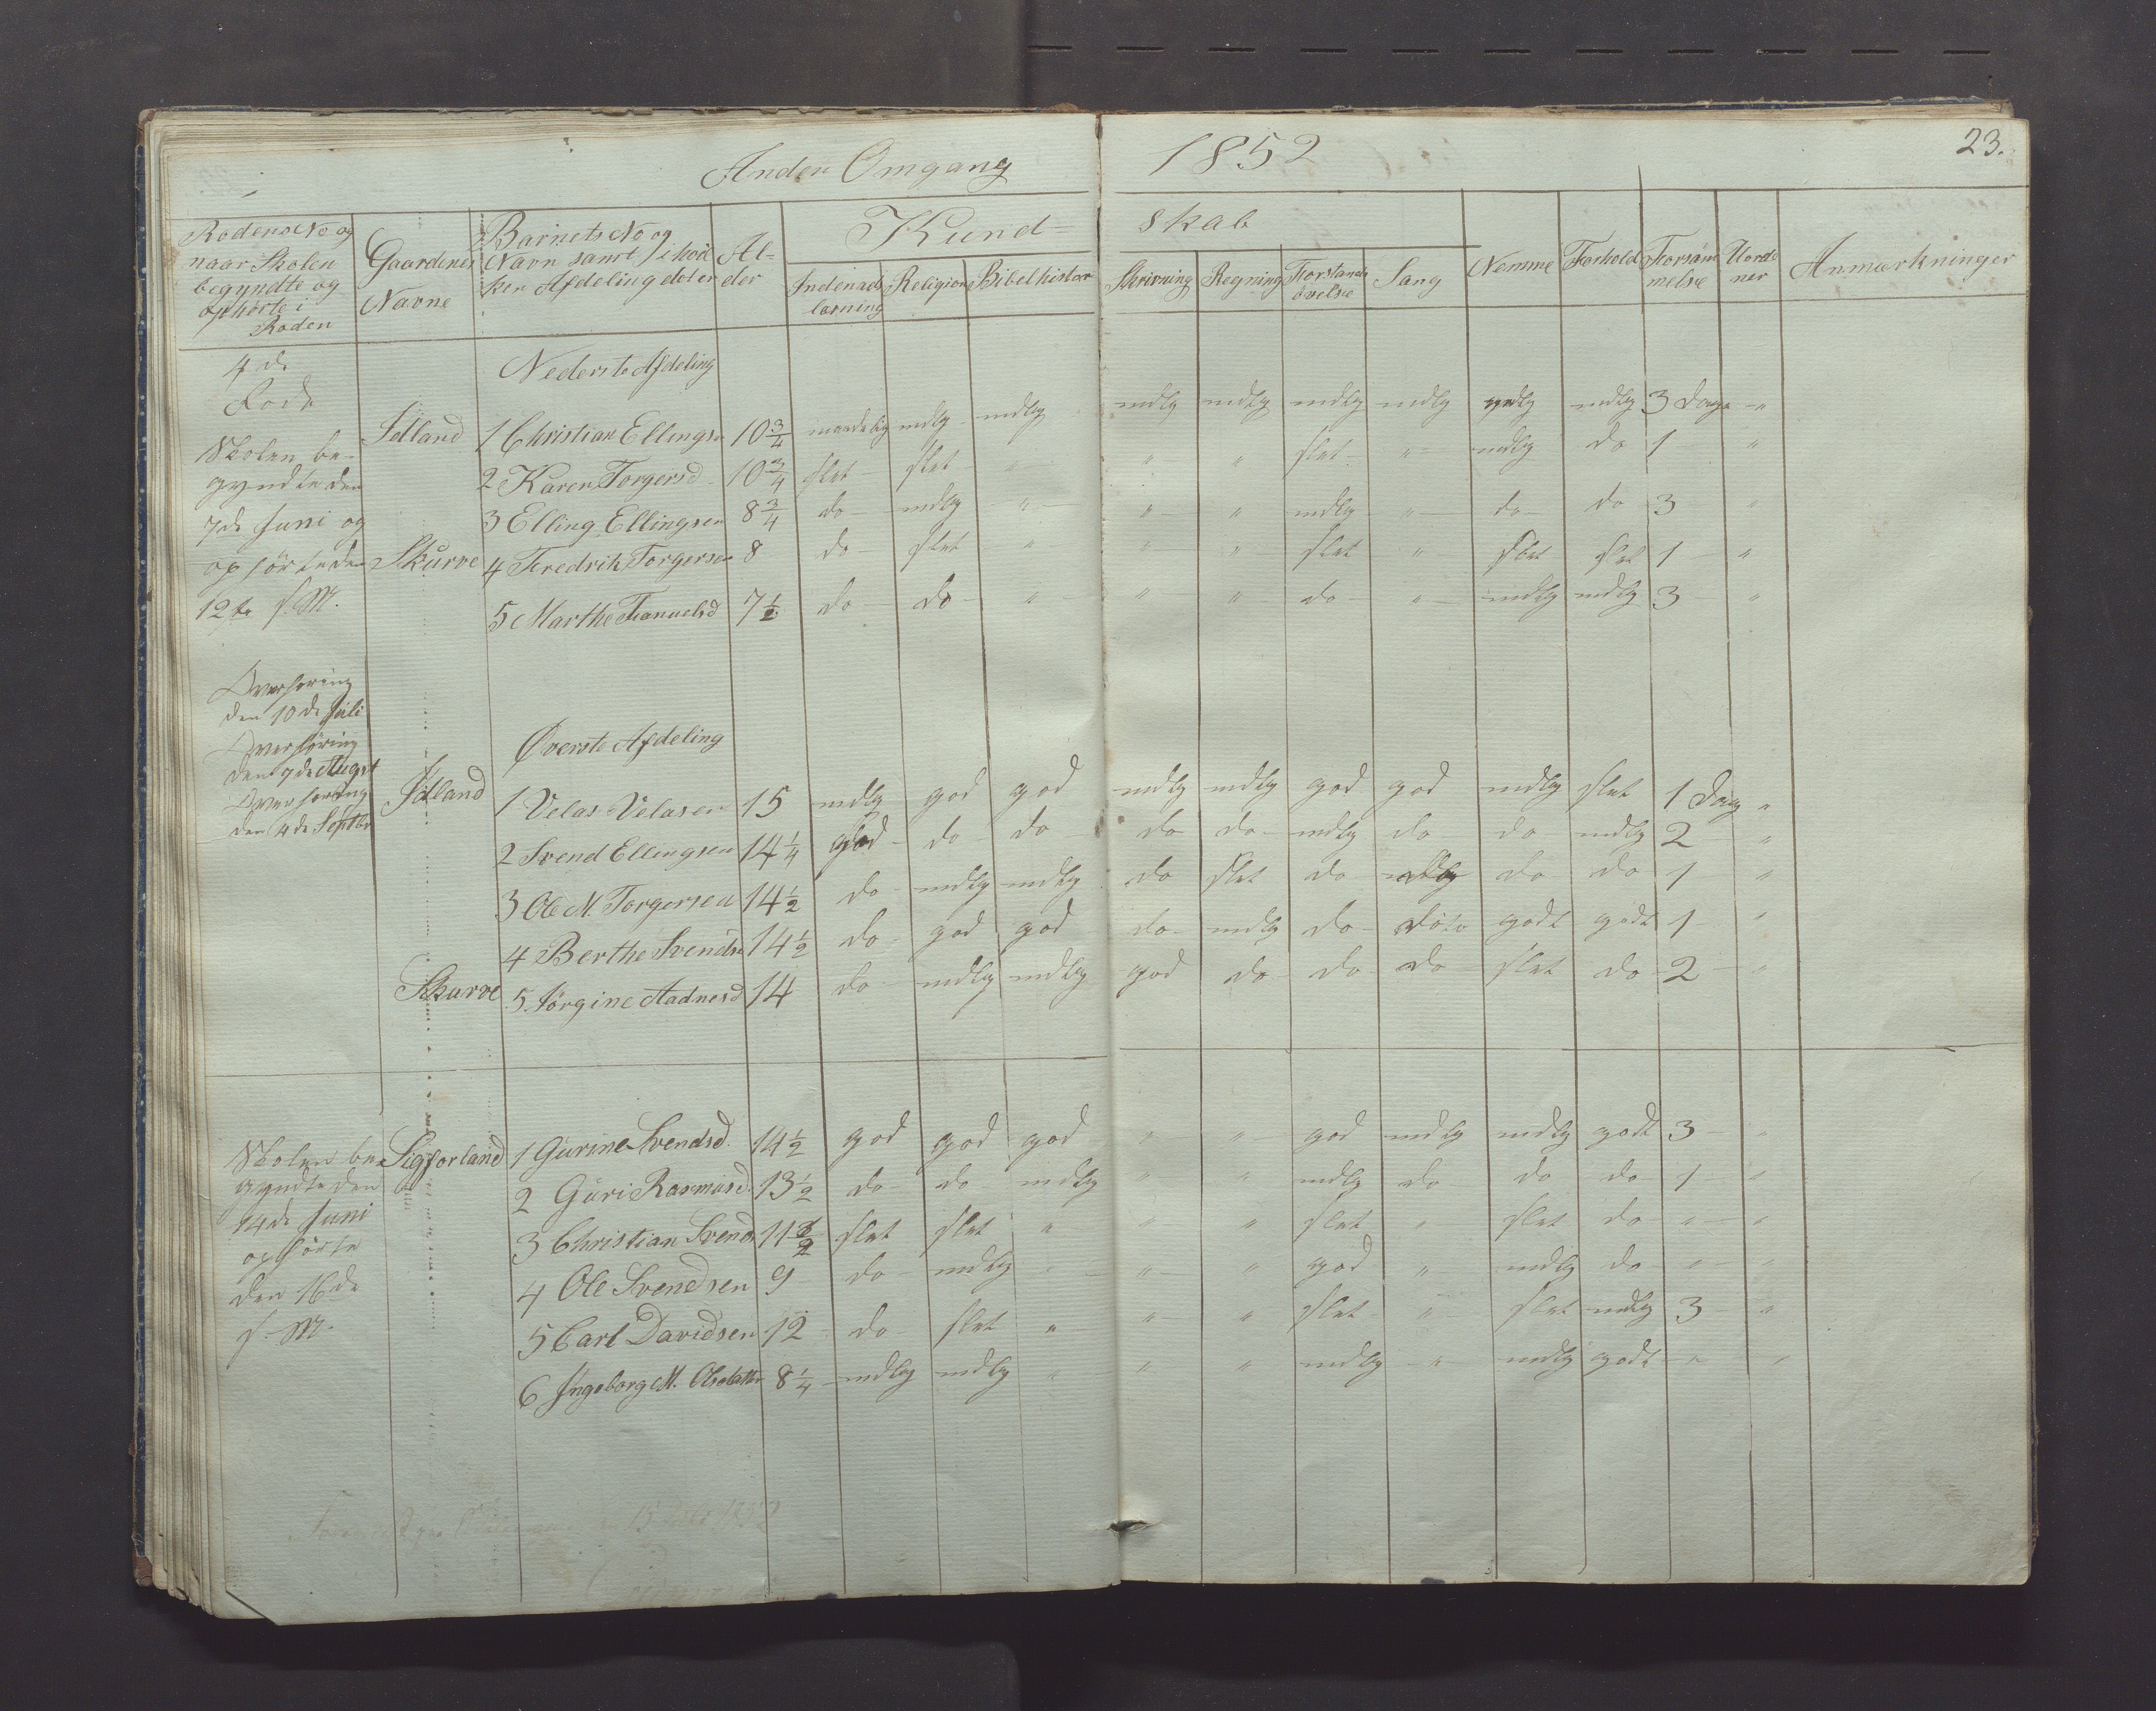 Anden Omgang 1852 23.
Rodens No og
naar Skolen
begyndte og
ophørte i
Roden
Gaardenes
Navne
Barnets No og
Navn samt i hvil
ken Afdeling det er
Al-
der
Kund-
skab
Indenads
læsning
Religion
Bibelhistor
Skrivning
Regning
Forstands
øvelse
Sang
Nemme
Forhold
Forsøm
melse
Uorde
ner
Anmærkninger
4de
Rode
Nederste Afdeling
Idland 1 Christian Ellingsen 10 3/4 maadelig mdlg mdlg mdlg mdlg mdlg mdlg mdlg mdlg 3 Dage - "
Skolen be-
gyndte den
7de Juni og
ophørte den
12te s. M.
2 Karen Torgersd 10 3/4 slet slet " " " slet " mdlg do 1 "
3 Elling Ellingsen 8 3/4 do mdlg " " " mdlg " do do 3 "
Skurve 4 Fredrik Torgersen 8 do slet " " " slet " slet slet 1 "
5 Marthe Tanuelsd 7 1/2 do do " " " do " mdlg mdlg 3 "
Overhøring
den 10de Juli
Overhøring
den 7de Augst
Overhøring
den 4de Septbr
Øverste Afdeling
Idland 1 Velas Velasen 15 mdlg god god mdlg mdlg god god mdlg slet 1 Dag "
2 Svend Ellingsen 14 1/4 god do do do do mdlg do do mdlg 2 "
3 Ole M. Torgersen 14 1/2 do mdlg mdlg do slet do mdlg do do 1 "
4 Berthe Svendsd 14 1/2 do god god do mdlg do dito godt godt 1 "
Skurve 5 Jørgine Aadnesd 14 do mdlg mdlg god do do do slet do 2 "
Skolen be
gyndte den
14de Juni
ophørte
den 16de
s. M.
Sigforland 1 Gurine Svendsd. 14 1/2 god god god " " god mdlg mdlg godt 3 "
2 Guri Rasmusd. 13 1/2 do do mdlg " " mdlg do do do 1 "
3 Christian Svends 11 1/2 slet slet " " " slet " slet do " "
4 Ole Svendsen 9 do mdlg " " " god " mdlg do " "
5 Carl Davidsen 12 do slet " " " slet " slet mdlg 3 "
6 Ingeborg M. Olsdatter 8 1/4 mdlg mdlg " " " mdlg " mdlg godt " "